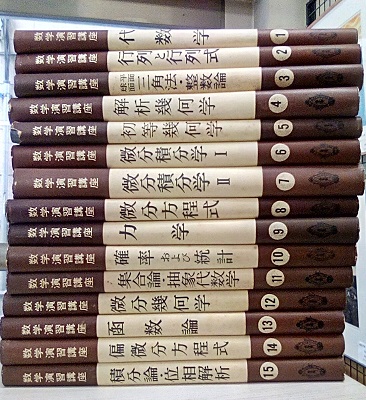 数学演習講座 代数学 1
数学演習講座 行列と行列式 2
数学演習講座 平面球面三角法・整数論 3
数学演習講座 解析幾何学 4
数学演習講座 初等幾何学 5
数学演習講座 微分積分学 I 6
数学演習講座 微分積分学 II 7
数学演習講座 微分方程式 8
数学演習講座 力学 9
数学演習講座 確率および統計 10
数学演習講座 集合論抽象代数学 11
数学演習講座 微分幾何学 12
数学演習講座 函数論 13
数学演習講座 偏微分方程式 14
数学演習講座 積分論・位相解析 15